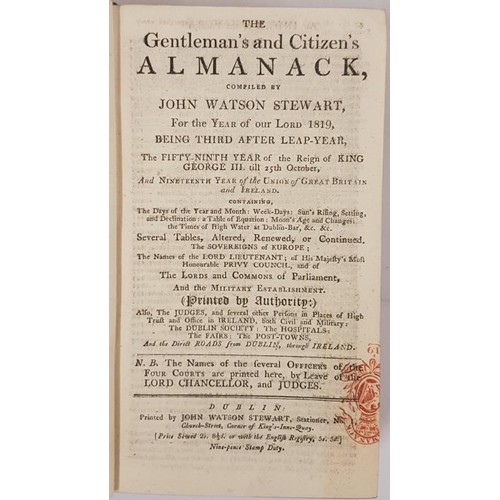 THE
Gentleman's and Citizen's
ALMANACK,
COMPILED BY
JOHN WATSON STEWART,
For the YEAR of our LORD 1819,
BEING THIRD AFTER LEAP-YEAR,
The FIFTY-NINTH YEAR of the Reign of KING
GEORGE III. till 25th October,
And NINETEENTH YEAR of the UNION of GREAT BRITAIN
and IRELAND.
CONTAINING,
The Days of the Year and Month: Week-Days: Sun's Rising, Setting,
and Declination: a Table of Equation: Moon's Age and Changes:
the Times of High Water at Dublin-Bar, &c. &c.
Several Tables, Altered, Renewed, or Continued.
The SOVEREIGNS of EUROPE;
The Names of the LORD LIEUTENANT; of His Majesty's Most
Honourable PRIVY COUNCIL, and of
The LORDS and COMMONS of Parliament,
And the MILITARY ESTABLISHMENT.
(Printed by Authority:)
Also, The JUDGES, and several other Persons in Places of High
Trust and Office in IRELAND, both Civil and Military:
The DUBLIN SOCIETY: The HOSPITALS:
The FAIRS: The POST-TOWNS,
And the Direct ROADS from DUBLIN, through IRELAND.
N. B. The Names of the several OFFICERS of the
FOUR COURTS are printed here, by Leave of the
LORD CHANCELLOR, and JUDGES.
DUBLIN:
Printed by JOHN WATSON STEWART, Stationer,
Church-Street, Corner of King's-Inns-Quay.
[Price Sewed 2s. 8½d. or with the English Registry, 5s. 5d.]
Nine-pence Stamp Duty.